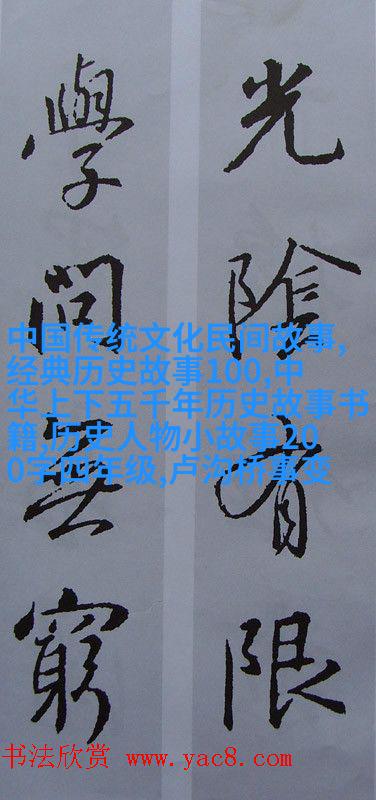 光陰有限
學問無窮
中国传统文化民间故事,
经典历史故事100,中
华上下五千年历史故事书
籍,历史人物小故事20
0字四年级,卢沟桥事变
书法欣赏 www.yac8.com